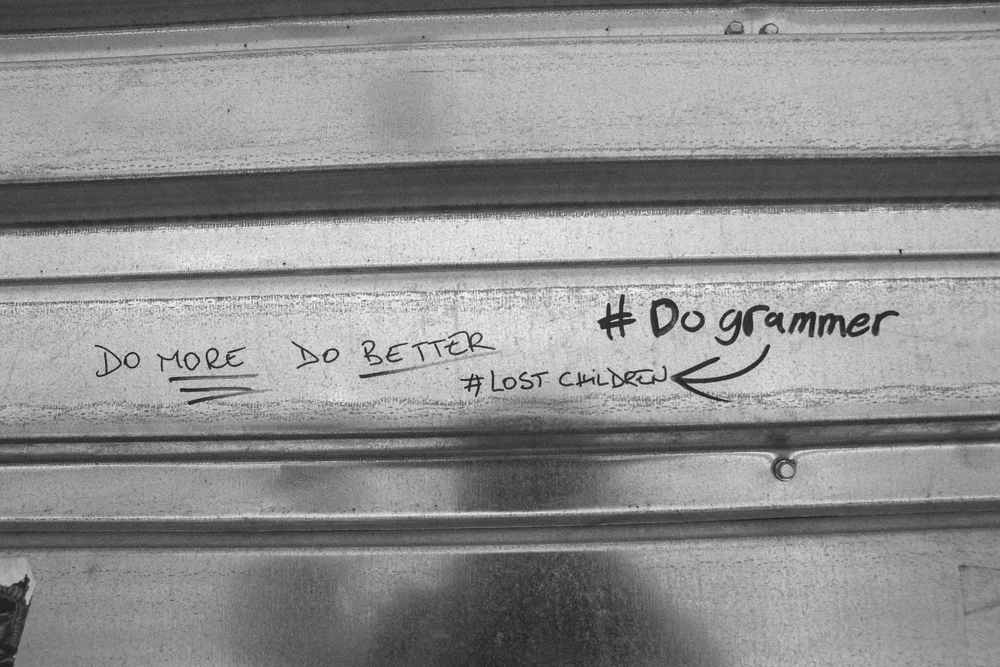 DO MORE DO BETTER
#LOST CHILDREN
# Do grammer